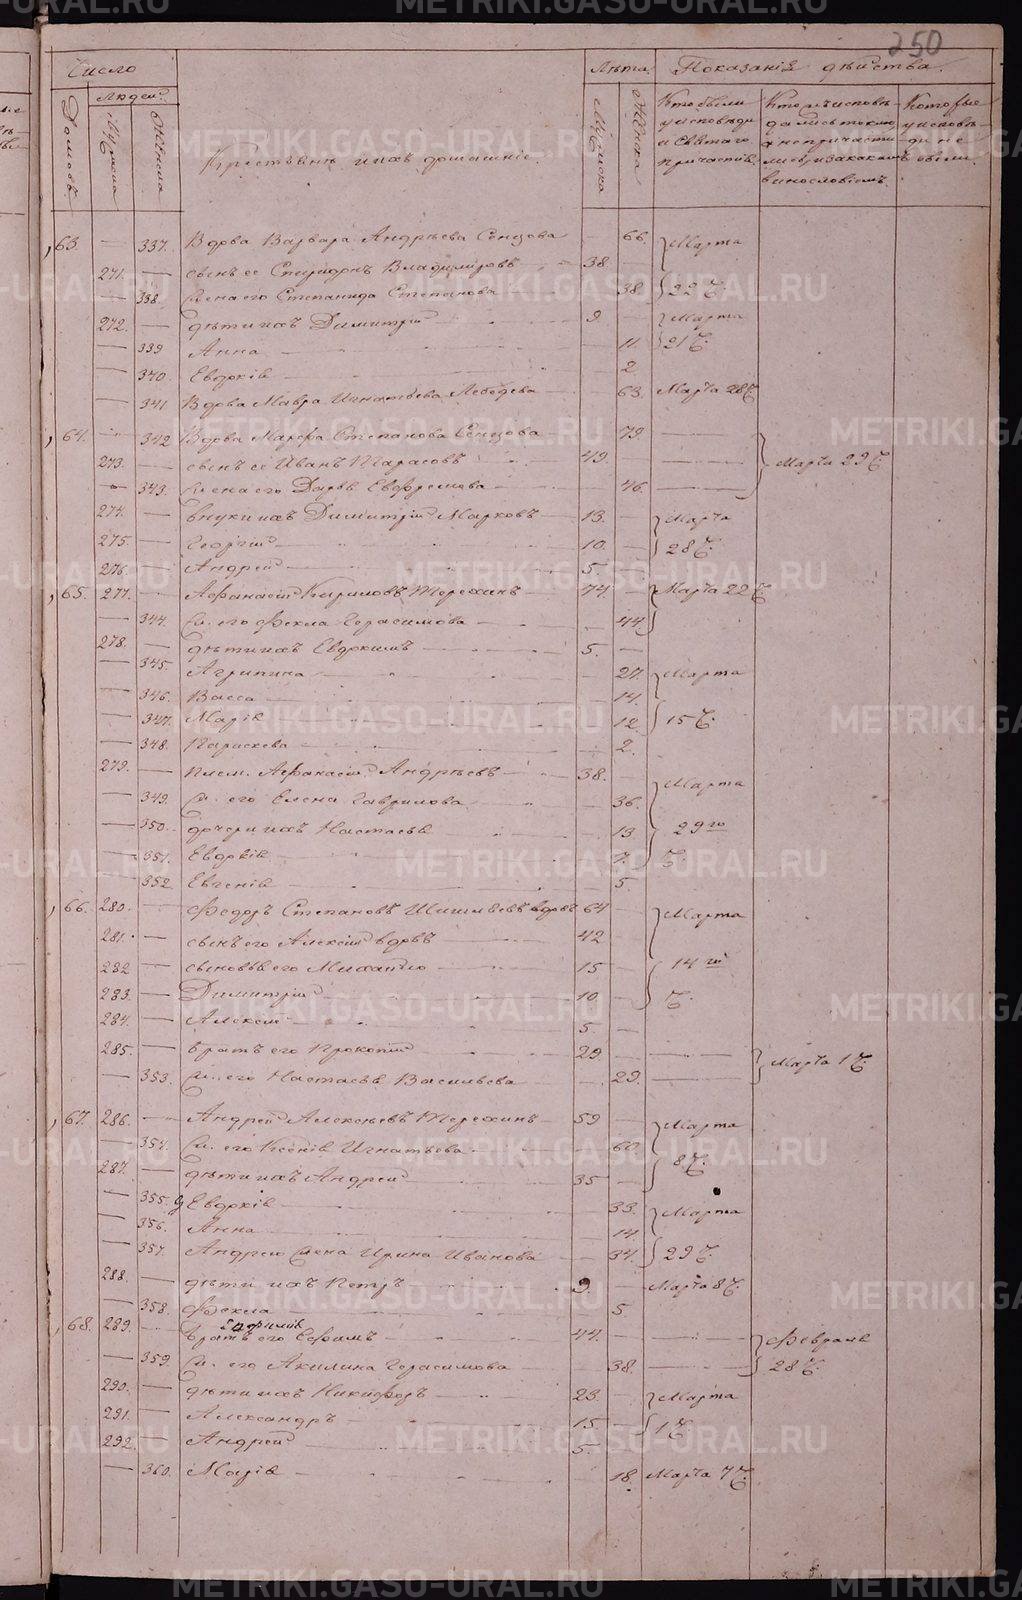 250
Число
Людей
Домовъ.
Мужска
Женска
Крестьянъ и ихъ домашніе.
Лѣта.
Мужска
Женска
Показанія дѣйства.
Кто были
у исповѣди
и Святаго
причастія.
Кто исповѣ-
дались токмо
а не причасти-
лись, и за какимъ
винословіемъ.
Которые
у исповѣ-
ди не
были.
63. — 337. Вдова Варвара Андрѣева Сенцова — 66. Марта
271. — сынъ ее Спиридонъ Владиміровъ 38. —
— 338. Жена его Степанида Степанова 38. 22 Ч.
272. — дѣти ихъ Димитрій 9. — Марта
— 339 Анна — 11. 21 Ч.
— 340. Евдокія — 2
— 341 Вдова Мавра Игнатьева Лебедева — 63. Марта 28 Ч.
64. — 342 Вдова Марфа Степанова Сенцова — 79. —
273. — сынъ ее Иванъ Тарасовъ 49. — Марта 29 Ч.
— 343. Жена его Дарья Евфремова — 46. —
274. — внуки ихъ Димитрій Марковъ 13. — Марта
275. — Георгій 10. — 28 Ч.
276. — Андрей 5. —
65. 277. — Афанасій Кириловъ Терехинъ 74. — Марта 22 Ч.
— 344. Ж. его Фекла Герасимова — 44.
278. — дѣти ихъ Евдокимъ 5. —
— 345. Агрипина — 27. Марта
— 346. Васса — 14.
— 347. Марія — 12. 15 Ч.
— 348. Параскева — 2.
279. — плем. Афанасій Андрѣевъ 38. — Марта
— 349. Ж. его Елена Гаврилова — 36.
— 350. дочери ихъ Настасья — 13 29го
— 351. Евдокія — 7. Ч.
— 352 Евгенія — 5.
66. 280. — Федоръ Степановъ вдовъ 64 — Марта
281. — сынъ его Алексій вдовъ 42
282 — сыновья его Михайло 15 — 14го
283. — Димитрій 10. — Ч.
284. — Алексій 5. —
285. — братъ его Прокопій 29. — Марта 1 Ч.
— 353. Ж. его Настасья Васильева — 29. —
67. 286. — Андрей Алексѣевъ Терехинъ 59 — Марта
— 354. Ж. его Ксенія Игнатьева — 60. 8 Ч.
287. — дѣти ихъ Андрей 35 —
— 355. Евдокія — 33. Марта
— 356. Анна — 14.
— 357. Андрею Жена Ирина Иванова — 34. 29 Ч.
288. — дѣти ихъ Петръ 9. — Марта 8 Ч.
— 358. Фекла — 5
68. 289. — братъ его Ефимъ 44. — Февраля
— 359. Ж. его Акилина Герасимова — 38. — 28 Ч.
290. — дѣти ихъ Никифоръ 23 — Марта
291. — Александръ 15 — 1 Ч.
292. — Андрей 5. —
— 360. Марія — 18. Марта 7 Ч.
METRIKI.GASO-URAL.RU